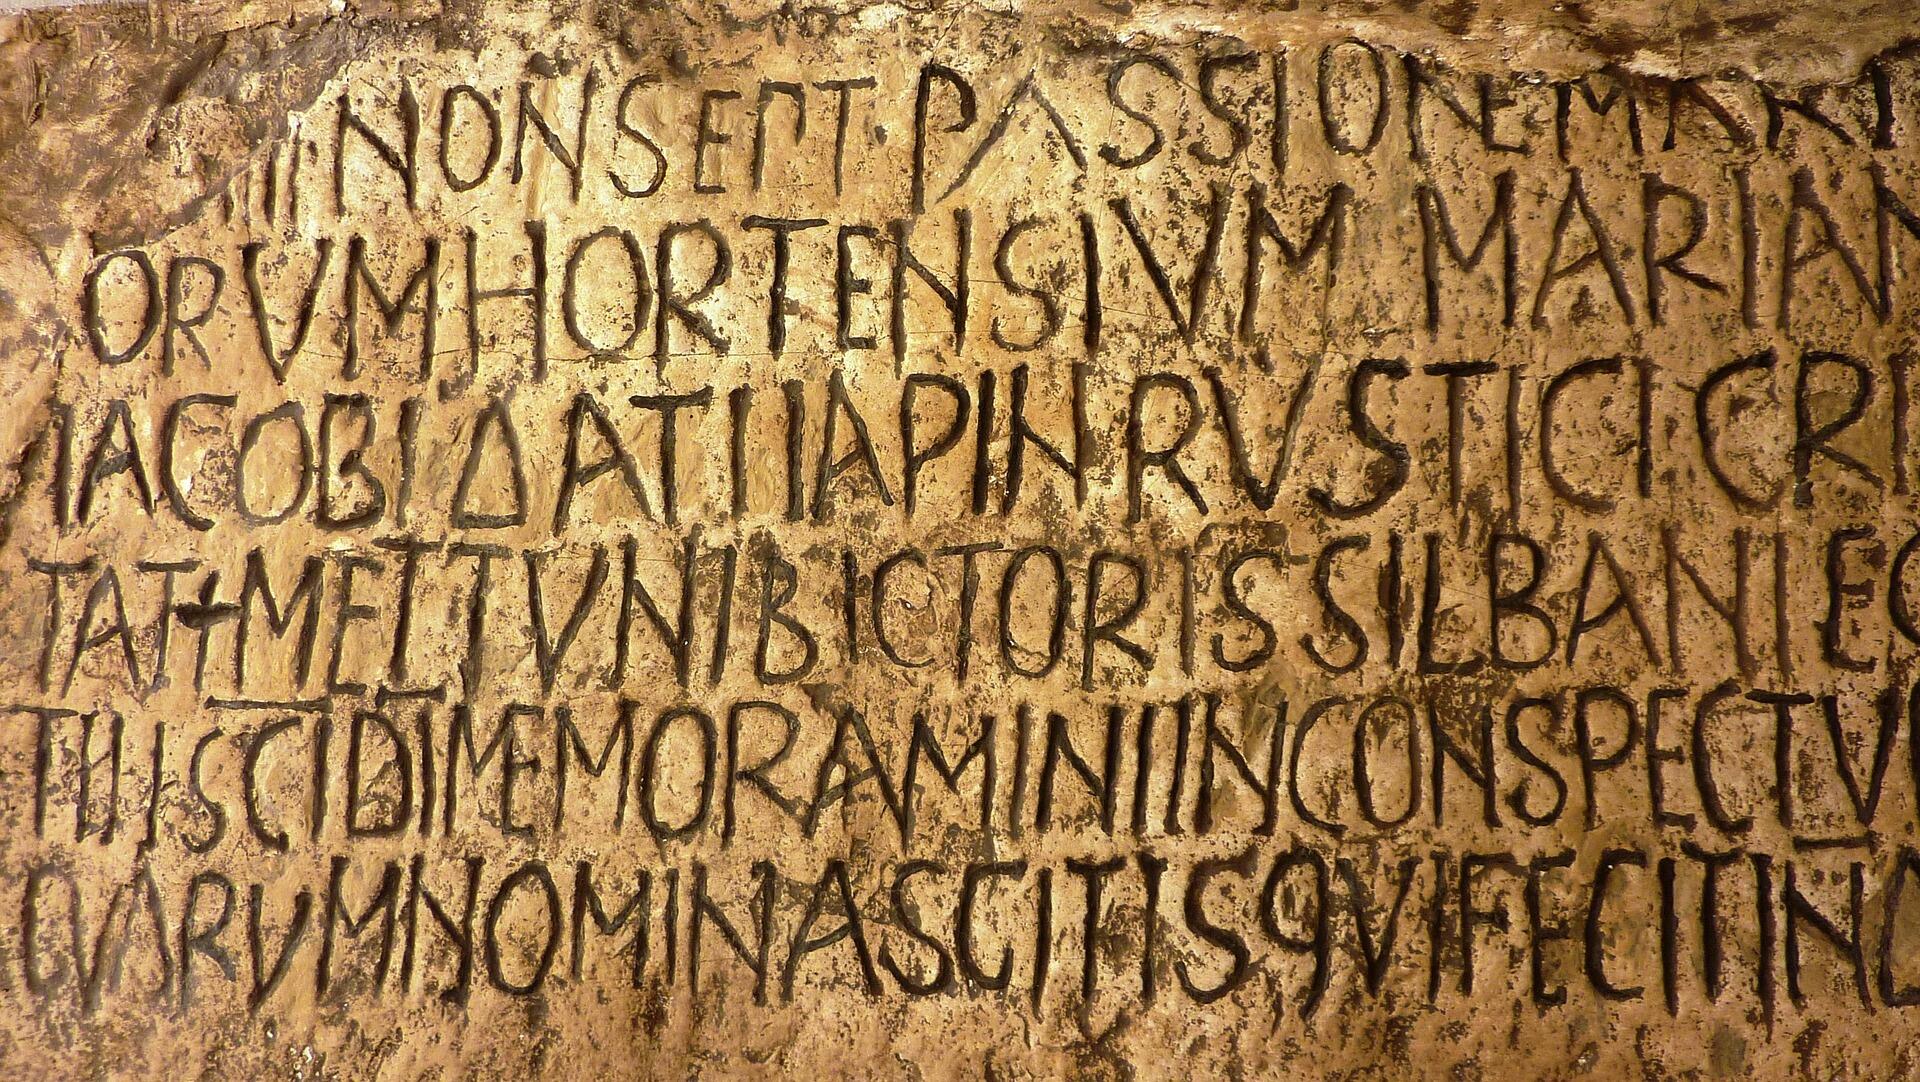 III NON SEPT · PASSIONE MARTYR
ORVM HORTENSIVM MARIAN
IACOBI ΔATI IAPIN RVSTICI CRI
TAT+ METTVNI BICTORIS SILBANI EG
TII SCI DI MEMORAMINI IN CONSPECTV
QVARVM NOMINA SCITIS QVI FECIT IN D